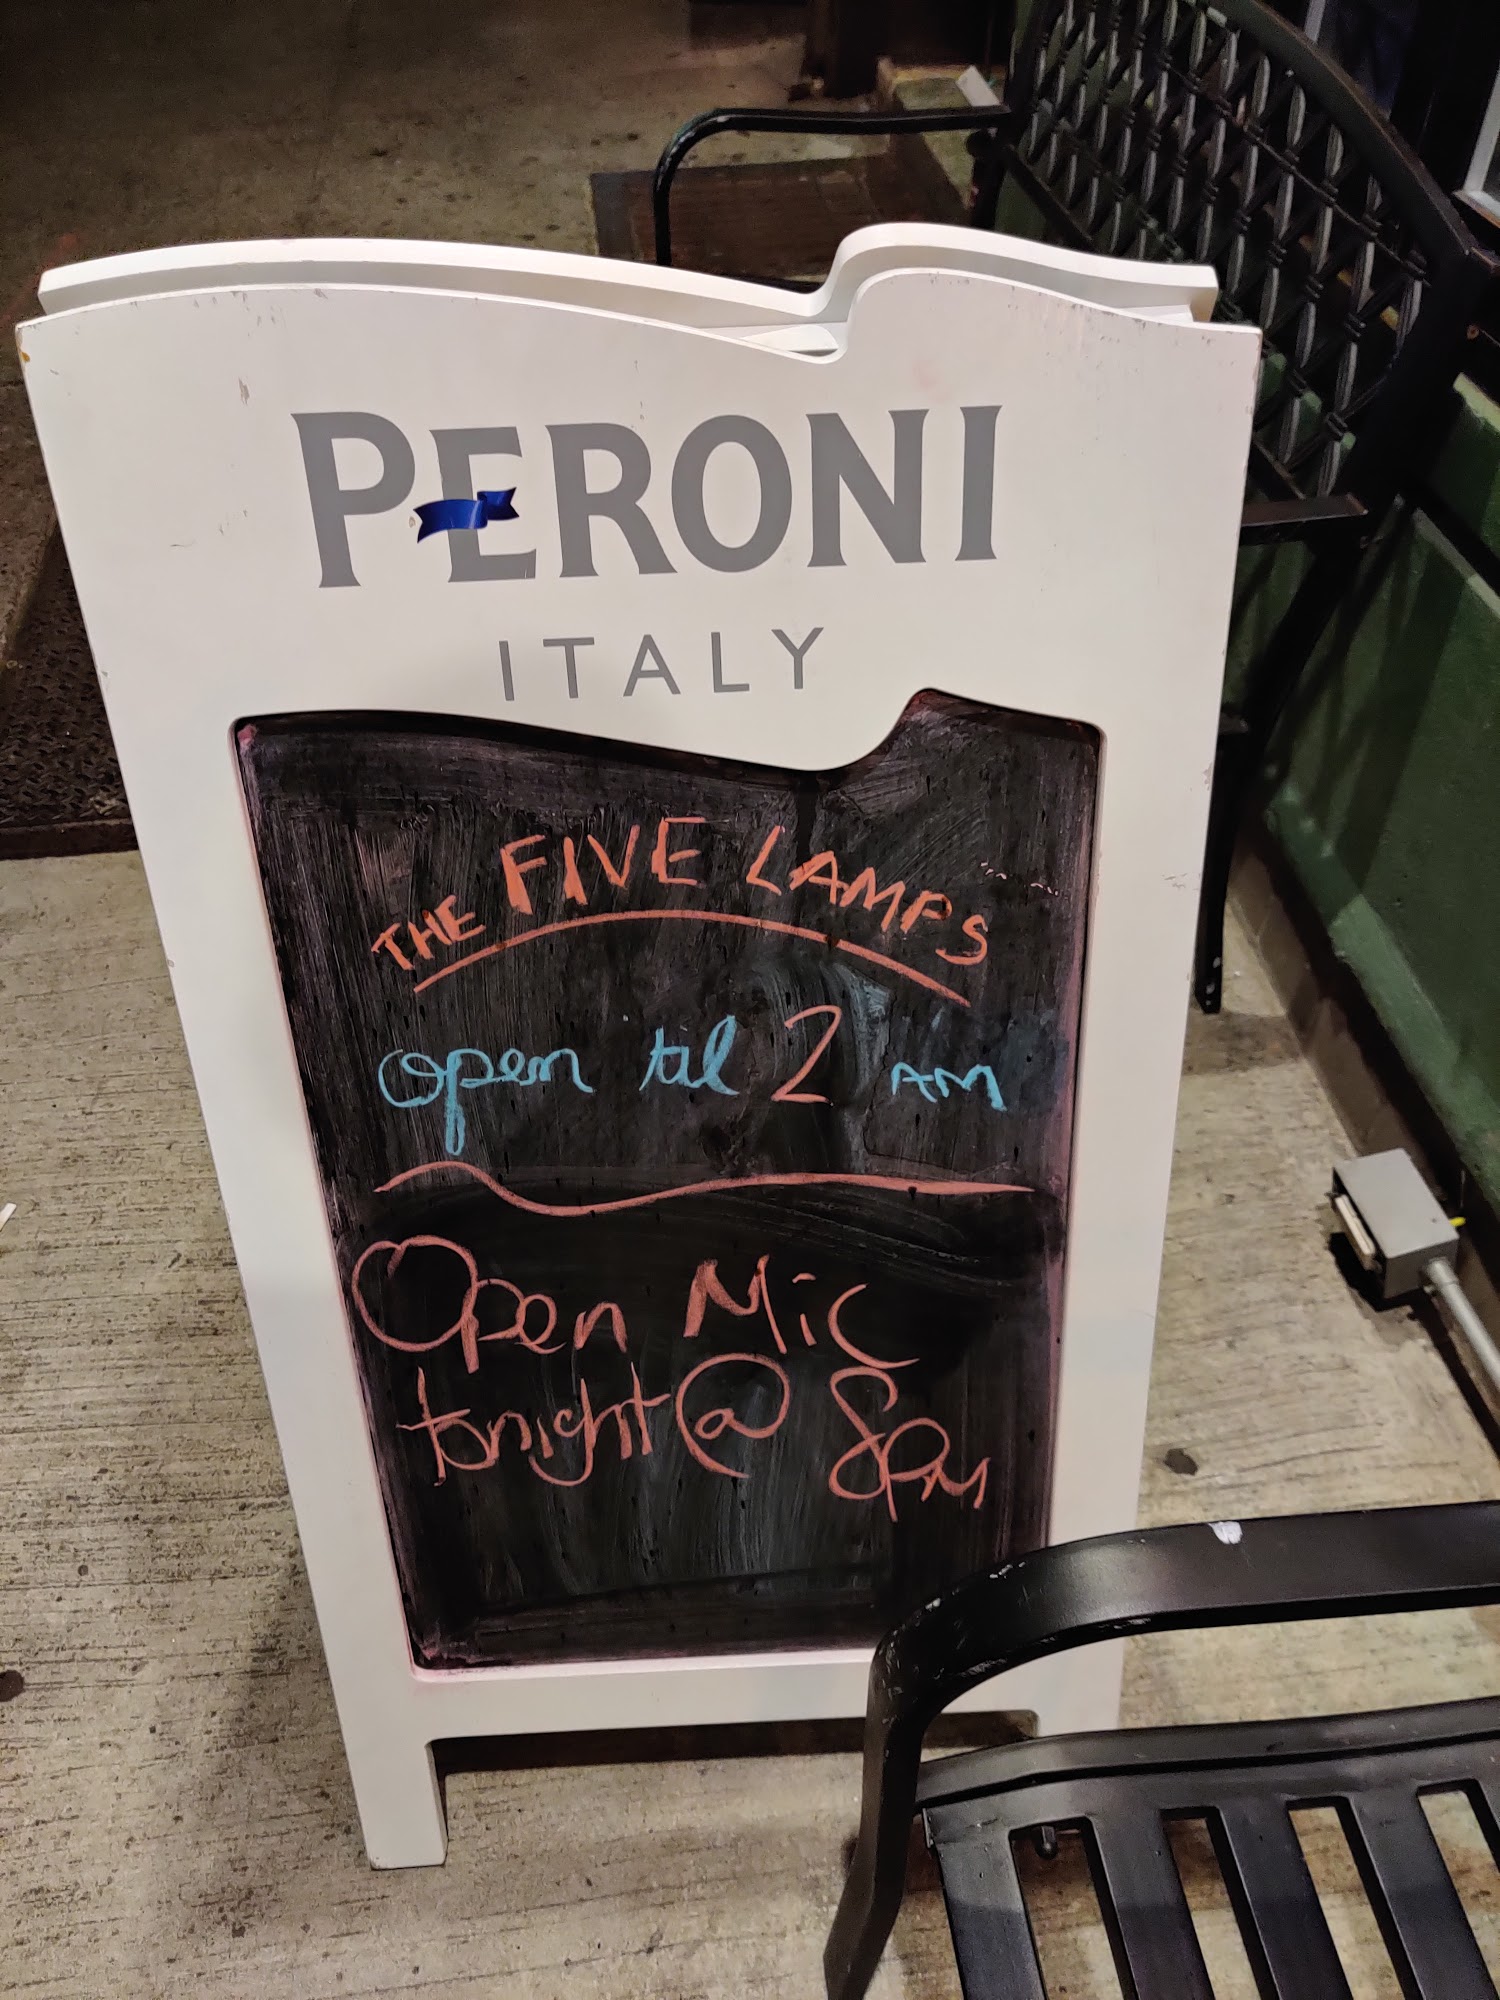 PERONI
ITALY
THE FIVE LAMPS
open til 2 AM
Open Mic
tonight @ 8pm